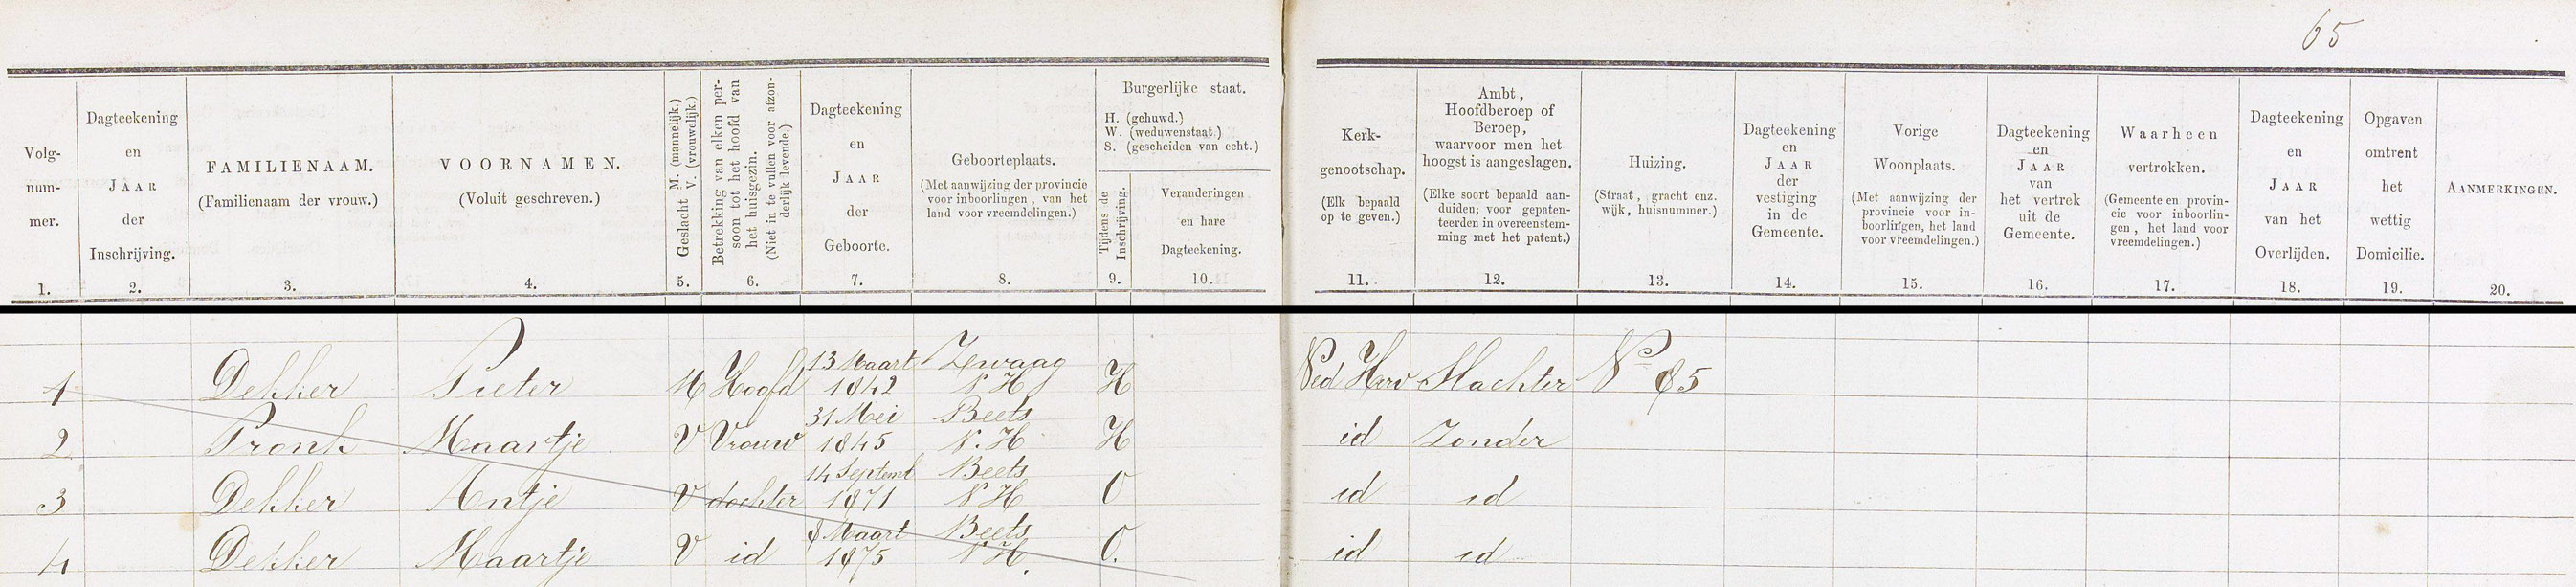 65
Volg-
num-
mer.
1.
Dagteekening
en
JAAR
der
Inschrijving.
2.
FAMILIENAAM.
(Familienaam der vrouw.)
3.
VOORNAMEN.
(Voluit geschreven.)
4.
Geslacht M. (mannelijk.)
V. (vrouwelijk.)
5.
Betrekking van elken per-
soon tot het hoofd van
het huisgezin.
(Niet in te vullen voor afzon-
derlijk levende.)
6.
Dagteekening
en
JAAR
der
Geboorte.
7.
Geboorteplaats.
(Met aanwijzing der provincie
voor inboorlingen, van het
land voor vreemdelingen.)
8.
Burgerlijke staat.
H. (gehuwd.)
W. (weduwenstaat.)
S. (gescheiden van echt.)
Tijdens de
Inschrijving.
9.
Veranderingen
en hare
Dagteekening.
10.
Kerk-
genootschap.
(Elk bepaald
op te geven.)
11.
Ambt,
Hoofdberoep of
Beroep,
waarvoor men het
hoogst is aangeslagen.
(Elke soort bepaald aan-
duiden; voor gepaten-
teerden in overeenstem-
ming met het patent.)
12.
Huizing.
(Straat, gracht enz.
wijk, huisnummer.)
13.
Dagteekening
en
JAAR
der
vestiging
in de
Gemeente.
14.
Vorige
Woonplaats.
(Met aanwijzing der
provincie voor in-
boorlingen, het land
voor vreemdelingen.)
15.
Dagteekening
en
JAAR
van
het vertrek
uit de
Gemeente.
16.
Waarheen
vertrokken.
(Gemeente en provin-
cie voor inboorlin-
gen, het land voor
vreemdelingen.)
17.
Dagteekening
en
JAAR
van het
Overlijden.
18.
Opgaven
omtrent
het
wettig
Domicilie.
19.
AANMERKINGEN.
20.
1 Dekker Pieter M Hoofd 13 Maart 1842 Zwaag N H H Ned Herv Slachter No 85
2 Pronk Maartje V Vrouw 31 Mei 1845 Beets N. H. H id Zonder
3 Dekker Antje V dochter 14 Septemb 1871 Beets N H O id id
4 Dekker Maartje V id 8 Maart 1875 Beets N H. O. id id